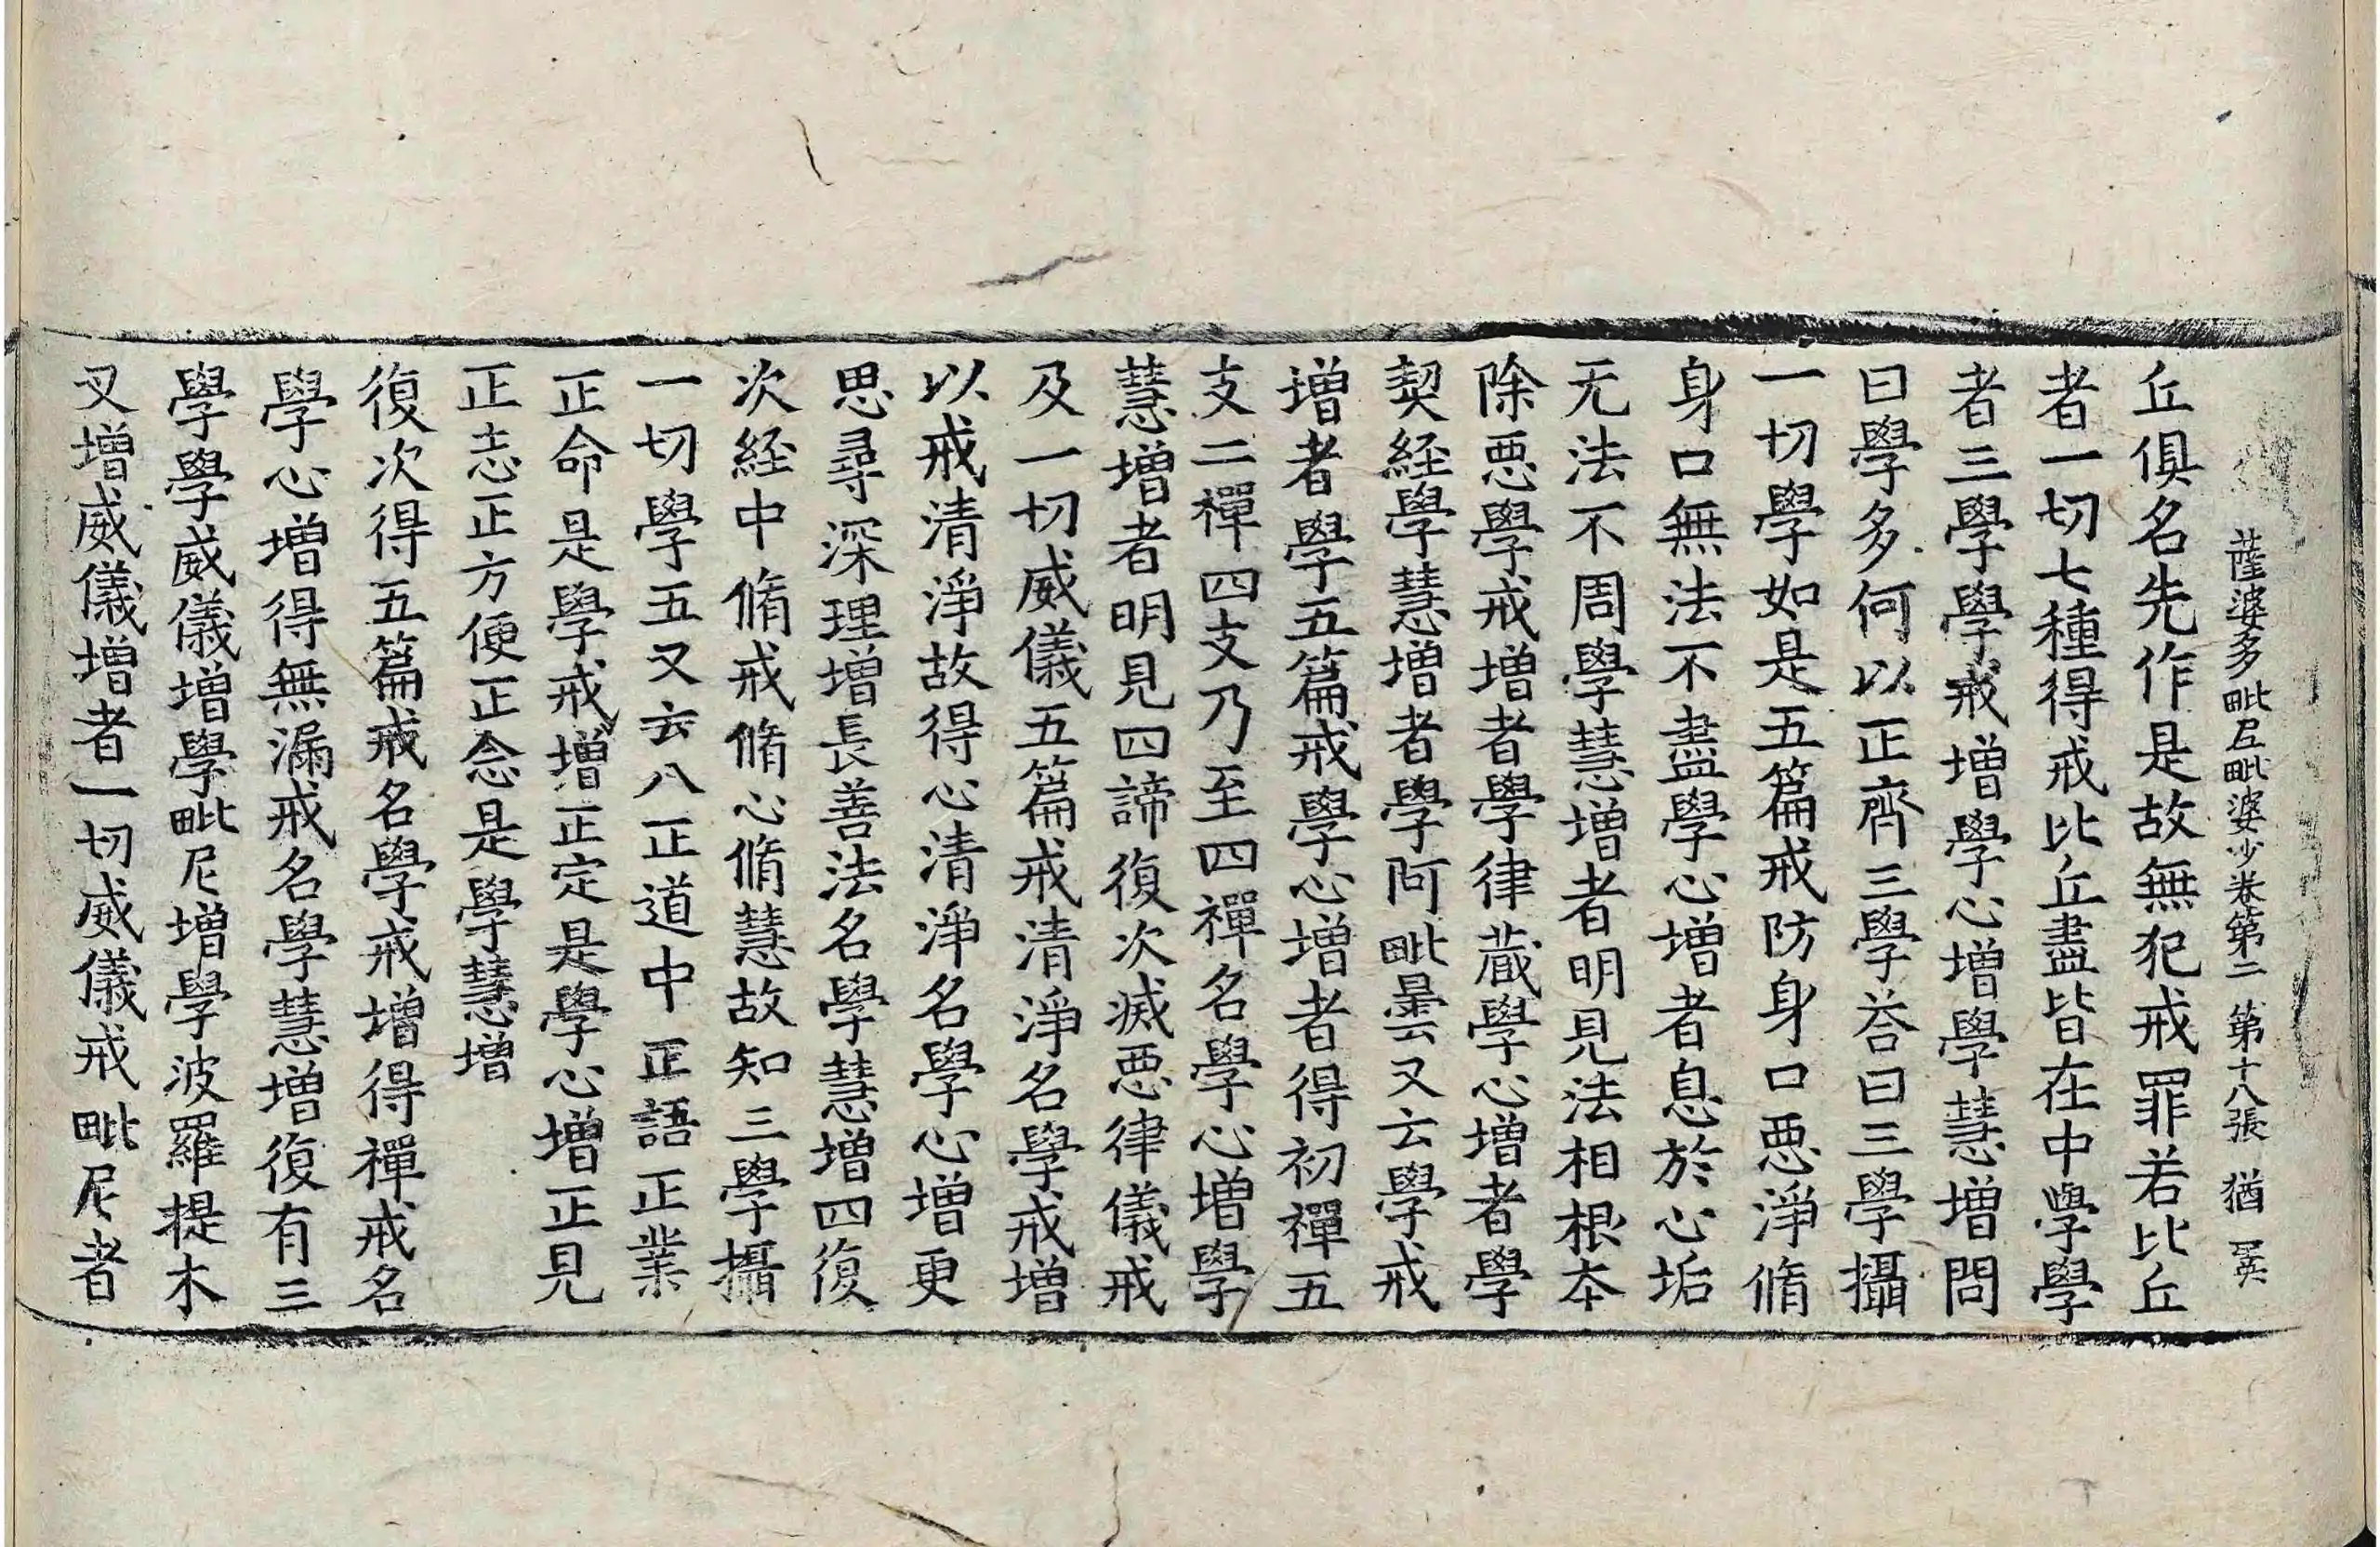 薩婆多毗尼毗婆沙卷第二 第十八張 猶
丘俱名先作是故無犯戒罪若比丘
者一切七種得戒比丘盡皆在中學學
者三學學戒增學心增學慧增問
曰學多何以正齊三學荅曰三學攝
一切學如是五篇戒防身口惡淨脩
身口無法不盡學心增者息於心垢
无法不周學慧增者明見法相根本
除惡學戒增者學律藏學心增者學
契経學慧增者學阿毗曇又云學戒
增者學五篇戒學心增者得初禪五
支二禪四支乃至四禪名學心增學
慧增者明見四諦復次滅惡律儀戒
及一切威儀五篇戒清淨名學戒增
以戒清淨故得心清淨名學心增更
思尋深理增長善法名學慧增四復
次経中脩戒脩心脩慧故知三學攝
一切學五又云八正道中正語正業
正命是學戒增正定是學心增正見
正志正方便正念是學慧增
復次得五篇戒名學戒增得禪戒名
學心增得無漏戒名學慧增復有三
學學威儀增學毗尼增學波羅提木
叉增威儀增者一切威儀戒毗尼者